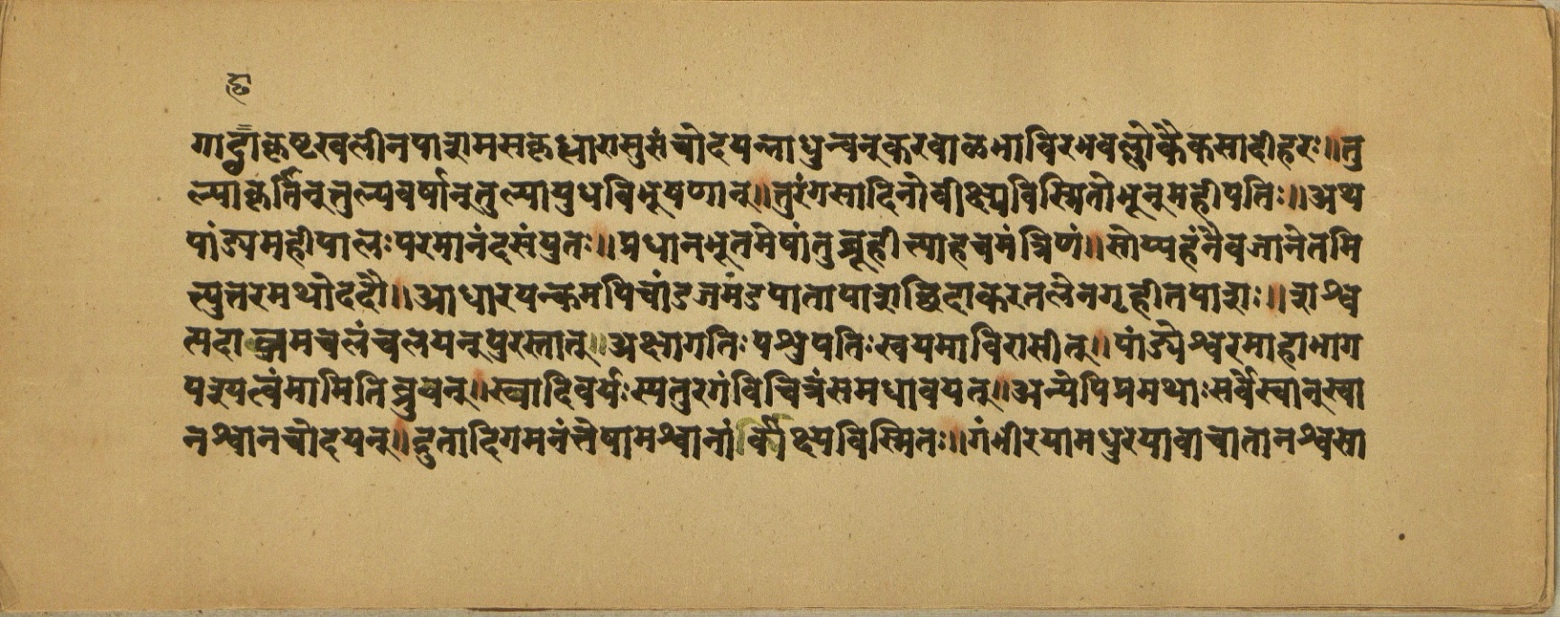 ढा
गाढाकृष्टखलीनपाशमसकृद्धारासुसंचोदयन्नाधुन्वन्करवाळमाविरभवल्लोकैकसादीहरः॥तु
ल्याकृतिन्तुल्यवर्षान्तुल्यायुधविभूषणान्॥तुरंगसादिनोवीक्ष्यविस्मितोभून्महीपतिः॥अथ
पांड्यमहीपालःपरमानंदसंप्लुतः॥प्रधानभूतमेषांतुब्रूहीत्याहचमंत्रिणं॥सोप्यहंनैवजानेतमि
त्युत्तरमथोददौ॥आधारयन्कमपिचांडजमंडपातापाशच्छिदाकरतलेनगृहीतपाशः॥शश्व
त्पदा मचलंचलयन्पुरस्तात्॥अक्ष्णोगतिःपशुपतिःस्वयमाविरासीत्॥पांड्येश्वरमाहाभाग
पश्यत्वंमामितिब्रुवन्॥स्वादिवर्यःस्पतुरगंविचित्रंसमधावयत्॥अन्येपिप्रमथाःसर्वेस्वान्स्वा
नश्वानचोदयन्॥द्रुतादिगमनंतेषामश्वानांवीक्ष्यविस्मितः॥गंभीरयामधुरयावाचातानश्वसा